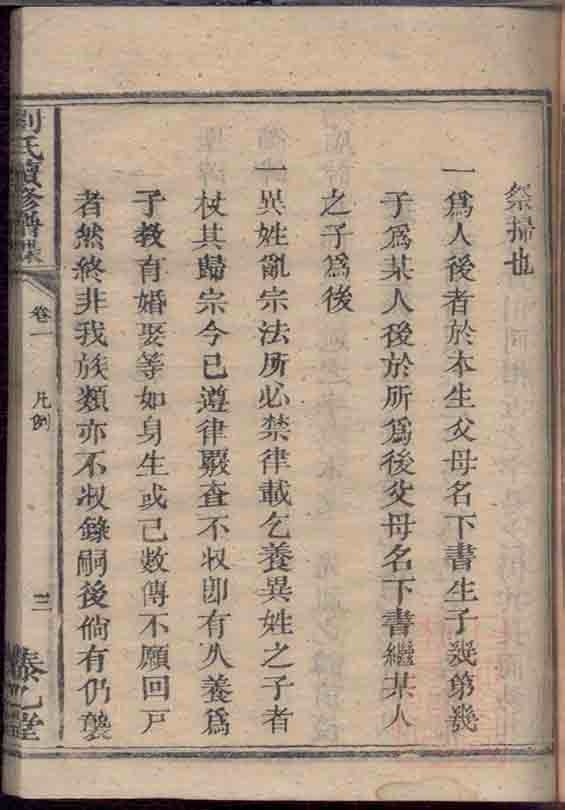 祭掃也
一爲人後者於本生父母名下書生子幾第幾
子爲某人後於所爲後父母名下書繼某人
之子爲後
一異姓亂宗法所必禁律載乞養異姓之子者
杖其歸宗今已遵律嚴查不收卽有久養爲
子教有婚娶等如身生或已數傳不願回戸
者然終非我族類亦不收錄嗣後倘有仍襲
劉氏續修譜牒
卷一 凡例
三
泰乙堂